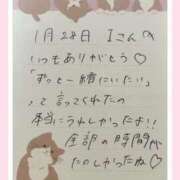 1月28日 Iさんの
いつもありがとう♡
「ずっと一緒にいたい」
って言ってくれたの
本当にうれしかったよ!!
全部の時間が
たのしかったね♡